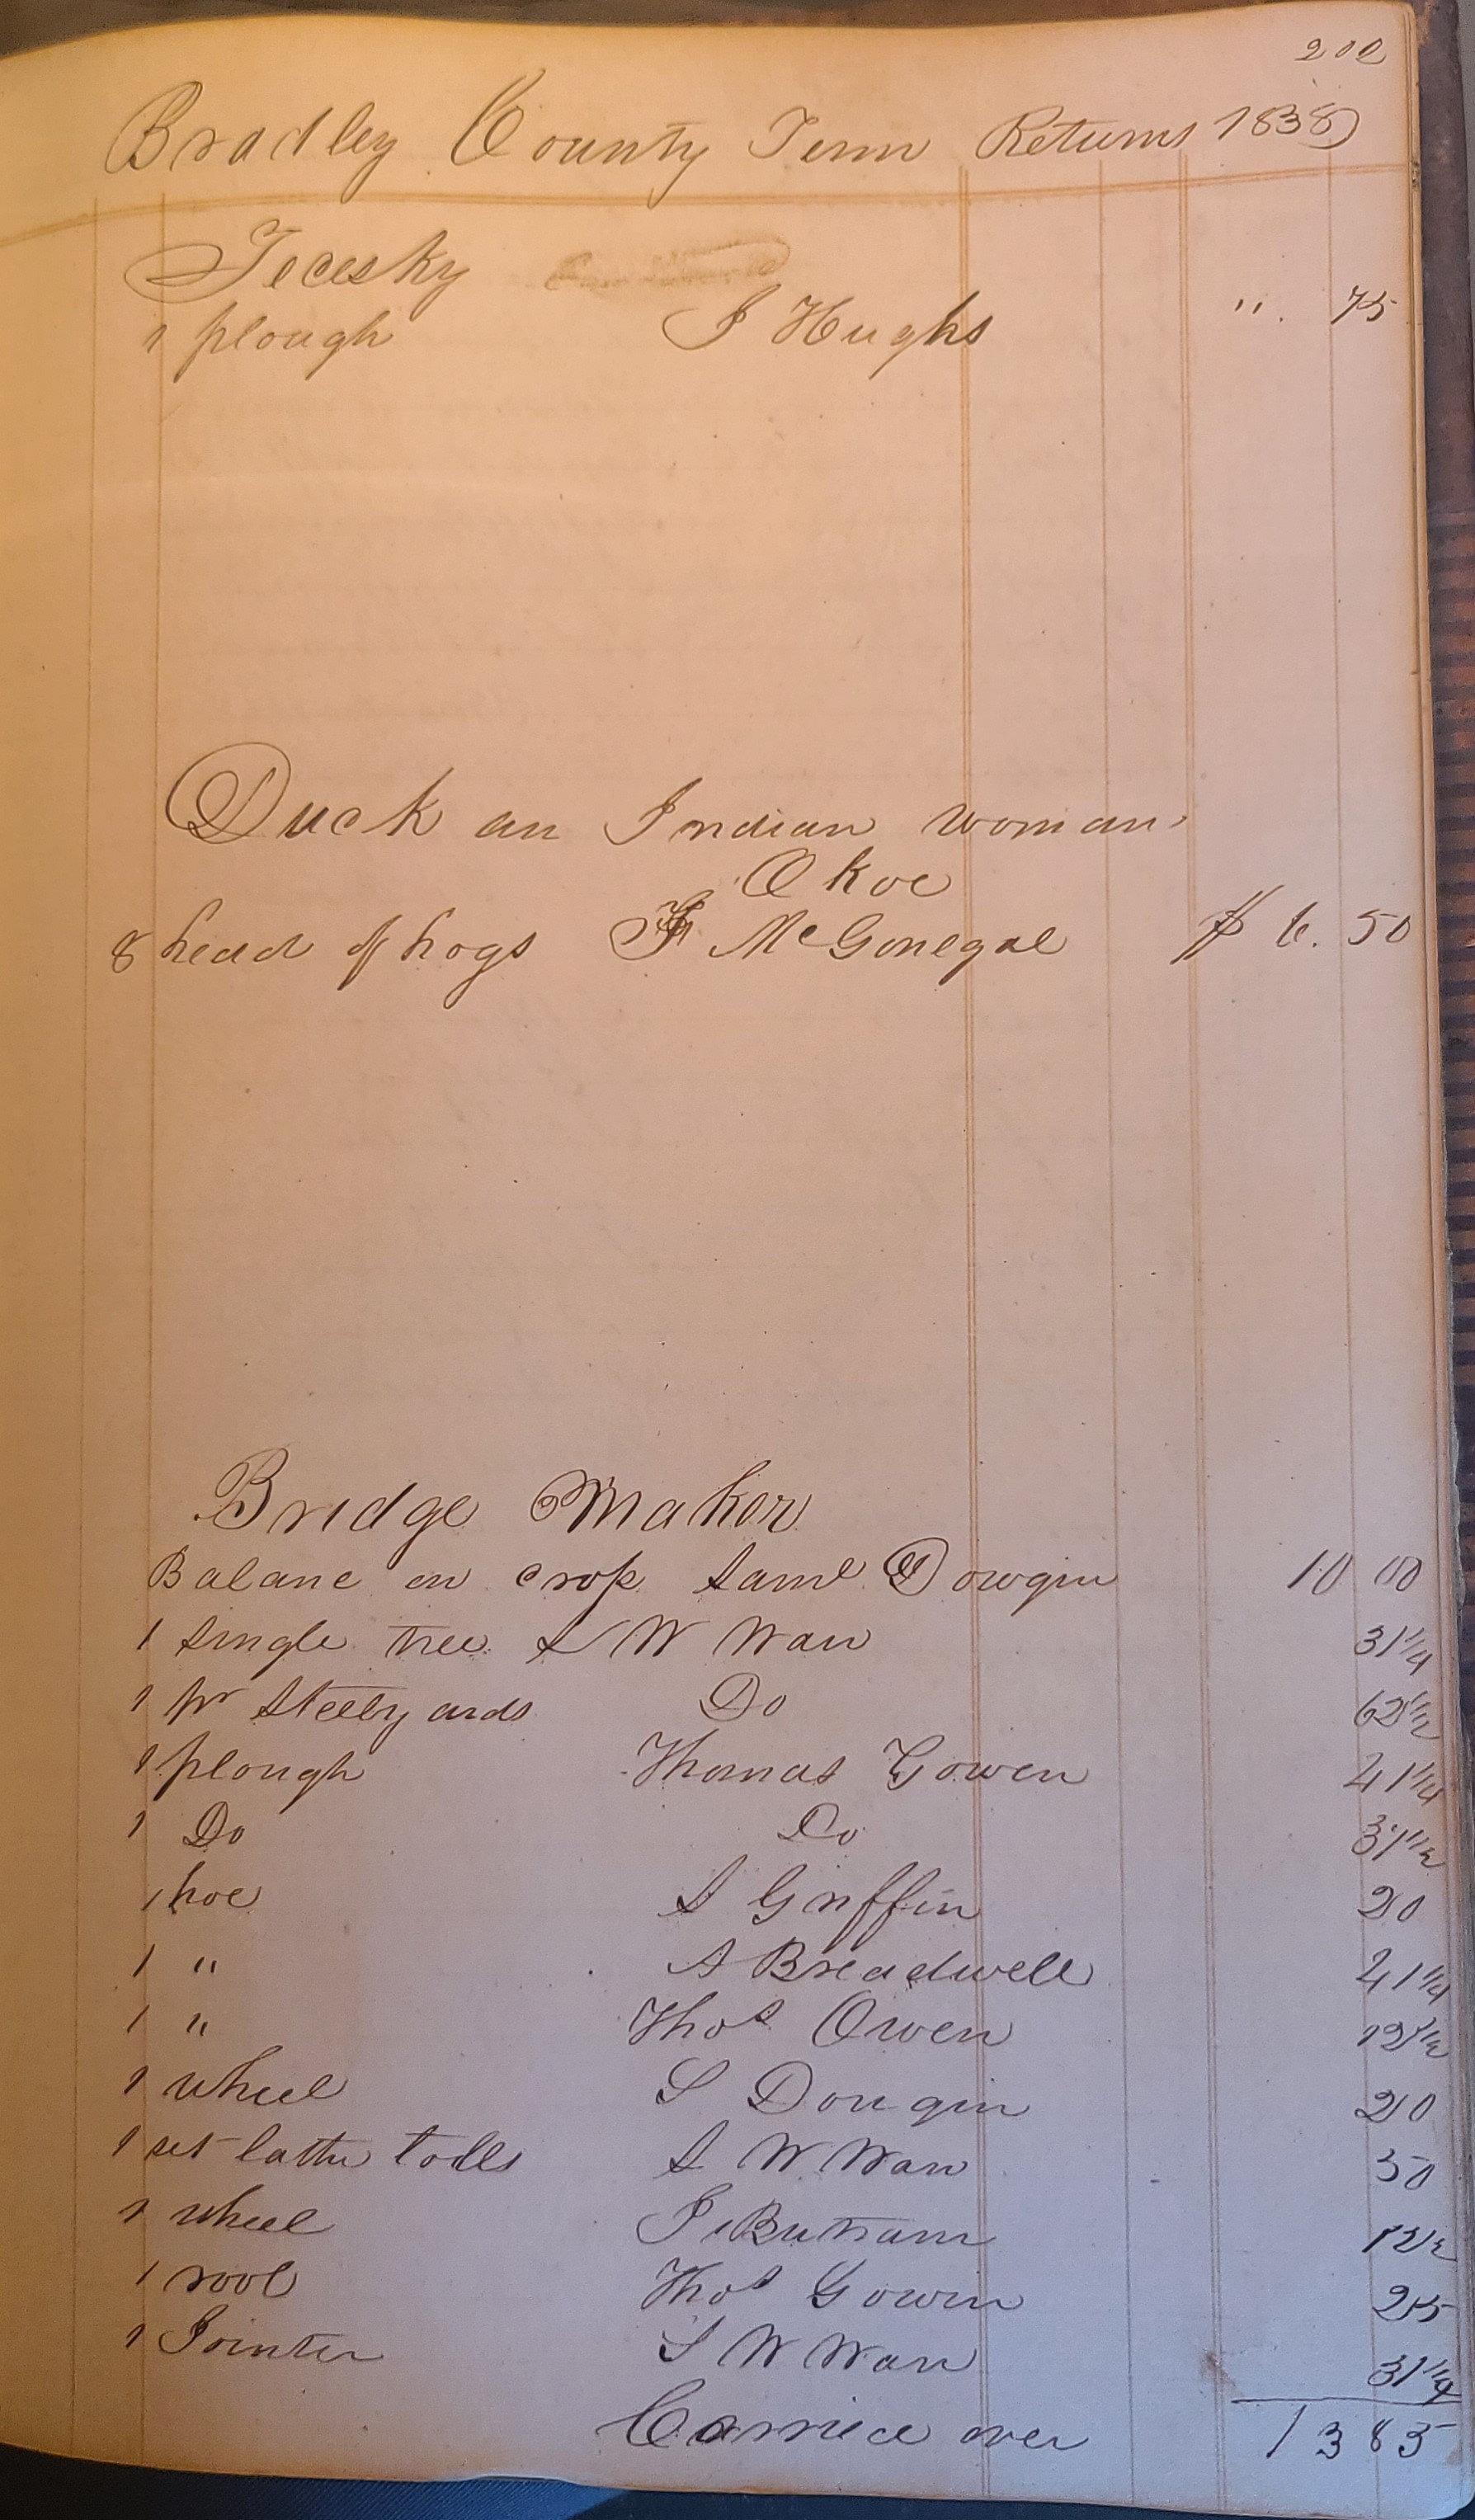 202
Bradley County Tenn Returns 1838
Tecesky
1 plough J Hughs " . 75
Duck an Indian woman
Okoe
8 head of hogs McGonegal $ 6. 50
Bridge Maker
Balanc on crop Saml Dowgin 10 00
1 Single tree S W Wan 31 1/4
1 pr Steelyards Do 62 1/2
1 plough Thomas Gowen 41 1/4
1 Do Do 31 1/2
1 hoe S Griffin 20
1 " A Breadwell 41 1/4
1 " Thos Owen 12 1/2
1 wheel S Dougin 20
1 set lathe tolls S W Wan 50
1 wheel J Butram 12 1/2
1 rool Thos Gowin 25
1 Jointer S W Wan 31 1/4
Carried over 13 83